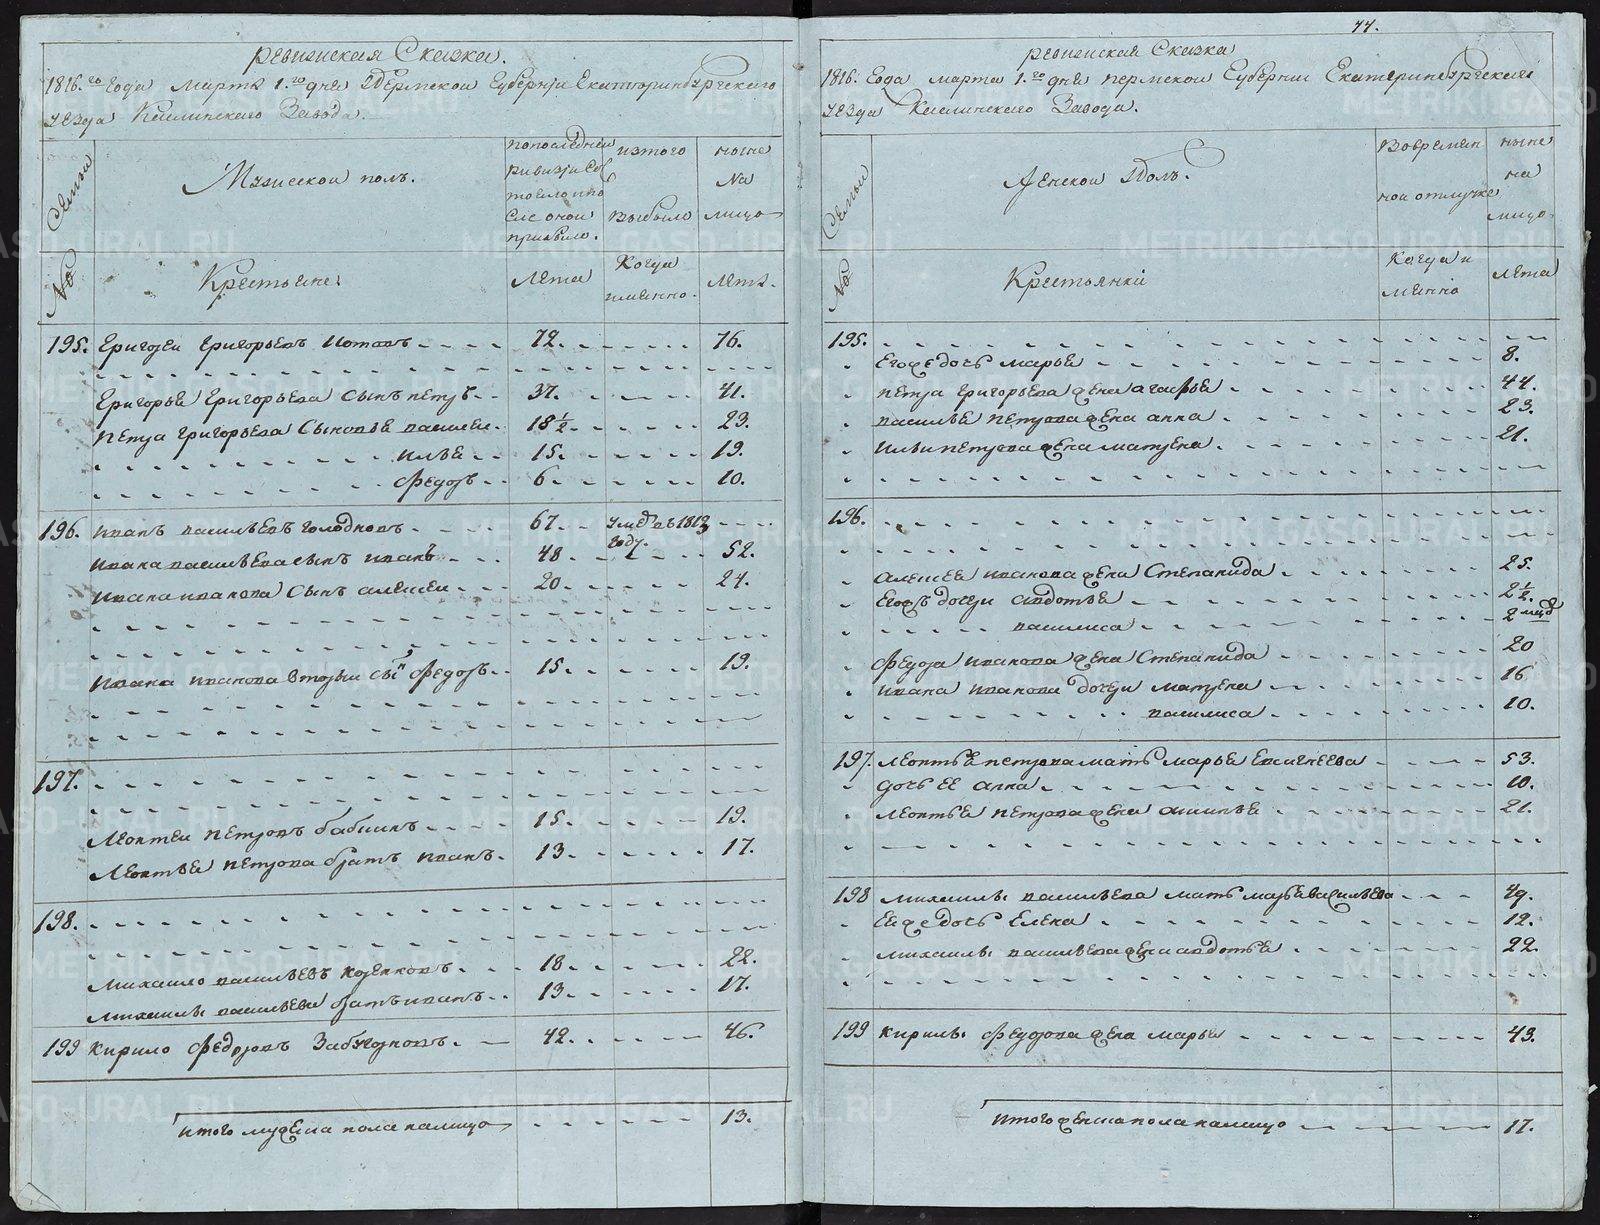 77.
ревизская Сказка.
1816.го Года Марта 1.го дня Пермской Губернии Екатеринбургского
уезда Каслинского Завода.
№ Семьи
Мужеской полъ.
По последней ревизии состояло и после оной прибыло.
изтого выбыло
ныне На лицо
Крестьяне
Лета
Когда имянно.
Лета.
195. Григорей Григорьевъ 72. 76.
Григорья Григорьева сынъ петръ 37. 41.
петра григорьева Сыновья василей 18½ 23.
илья 15. 19.
Федоръ 6. 10.
196. иванъ васильевъ голодновъ 67. умре въ 1813 году.
ивана васильева сынъ иванъ 48 52.
ивана иванова Сынъ алексей 20 24.
ивана иванова вторый сынъ Федоръ 15. 19.
197.
леонтей петровъ бабинъ 15. 19.
леонтья петрова братъ иванъ 13. 17.
198.
михаило васильевъ 18 22.
михаилы васильева братъ иванъ 13. 17.
199 кирило Федоровъ 42. 46.
итого мужеска пола налицо 13.
ревизская Сказка
1816. Года марта 1.го дня пермской Губернии Екатеринбургского
уезда Каслинского Завода.
№ Семьи
Женской Полъ.
Во временной отлучке
ныне на лицо
Крестьянки
Когда и мянно
лета
195.
Его же дочь марья 8.
петра григорьева жена агафья 44.
василья петрова жена анна 23.
ильи петрова жена матрена 21.
196.
алексея иванова жена Степанида 25.
Егожъ дочери авдотья 2½.
василиса 2 мцо
Федора иванова жена Степанида 20
ивана иванова дочери матрена 16
василиса 10.
197. леонтья петрова мать марья Евсигнеева 53.
дочь ее анна 10.
леонтья петрова жена 21.
198 михаилы васильева мать марья васильева 49.
Ея же дочь Елена 12.
михаилы васильева жена авдотья 22.
199 кирилы Федорова жена марья 43.
итого женска пола налицо 17.
METRIKI.GASO-URAL.RU